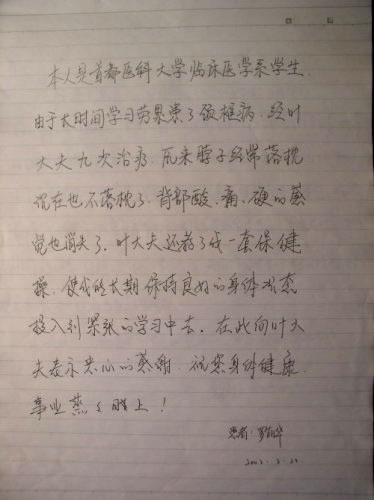 本人是首都医科大学临床医学系学生.
由于长时间学习劳累患了颈椎病.经叶
大夫九次治疗.原来脖子经常落枕
现在也不落枕了.背部酸、痛、硬的感
觉也消失了.叶大夫还教了我一套保健
操.使我能长期保持良好的身体状态
投入到紧张的学习中去.在此向叶大
夫表示衷心的感谢.祝您身体健康.
事业蒸蒸日上!
患者: